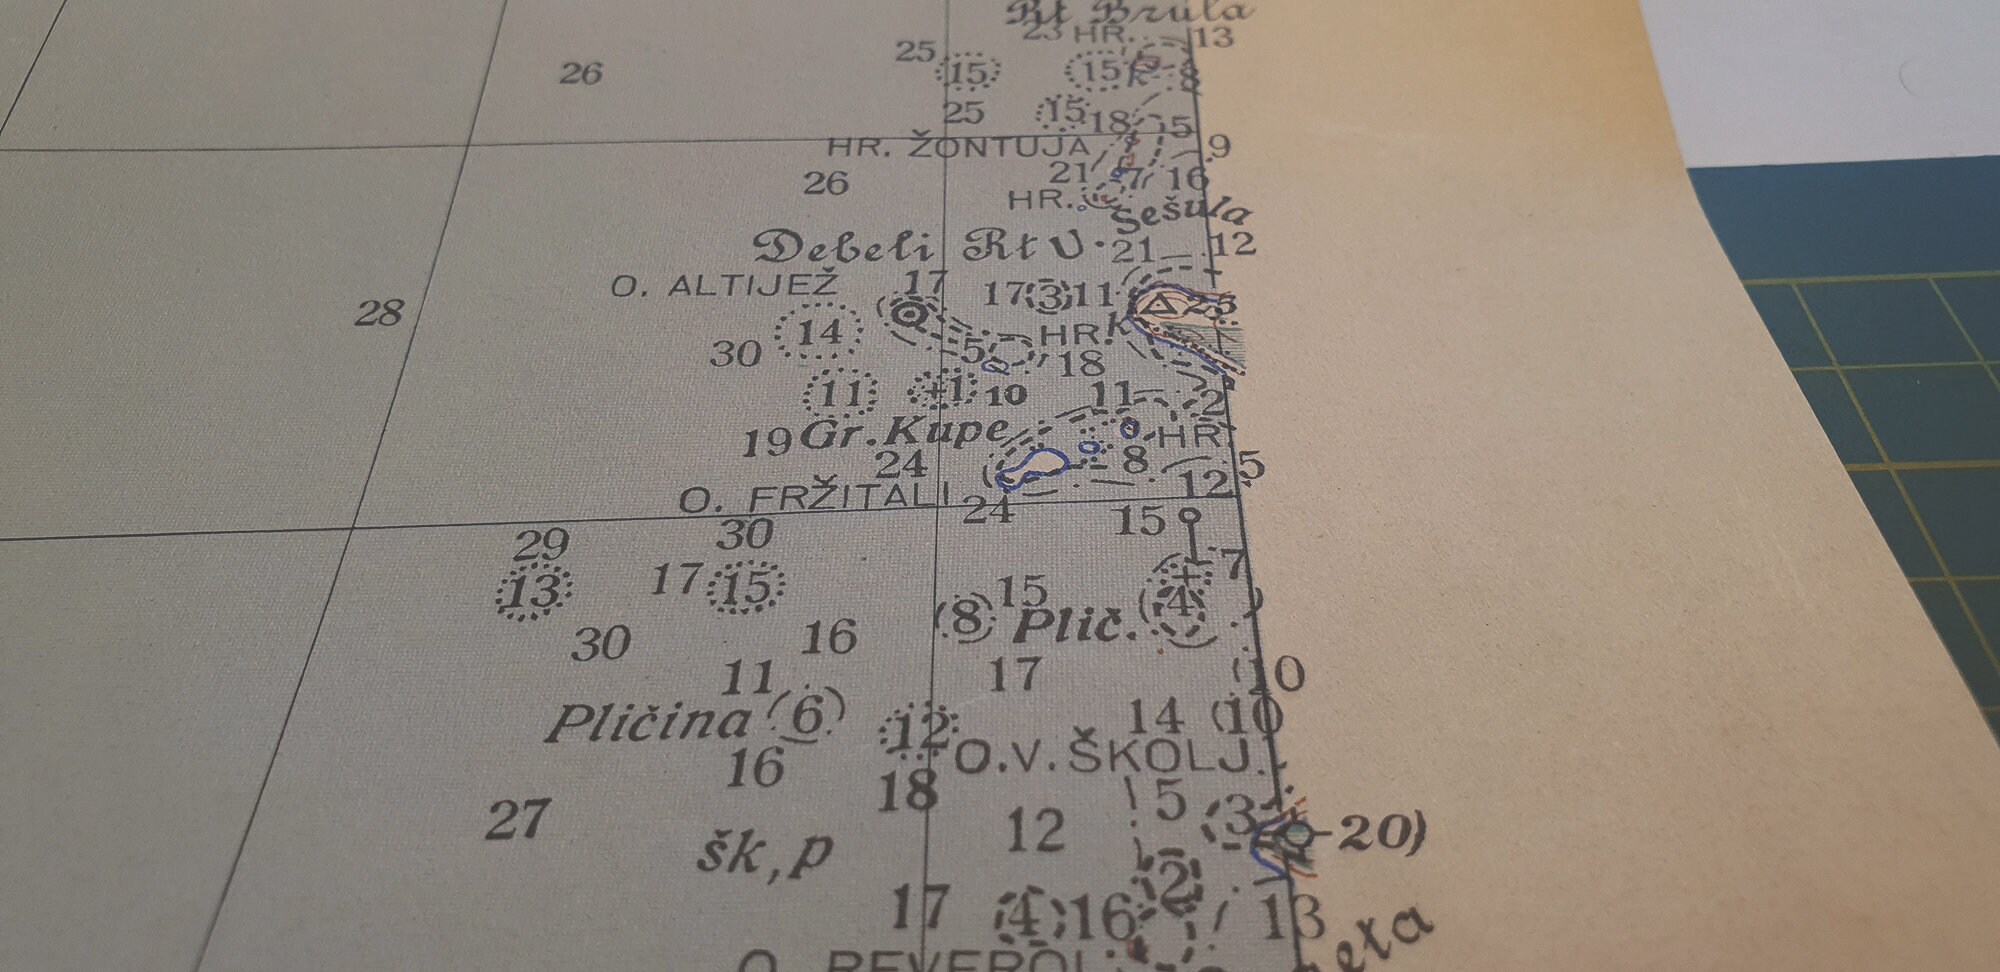 Rt Brula
23 HR. 13
25 15 15 k 8
26
25 15 18 15
HR. ŽONTUJA 9
26 21 7 16
HR. Sešula
Debeli Rt U. 21 12
O. ALTIJEŽ 17 17 (3) 11 25
28 14 HR. k
30 5 18
11 +1 10 11 2
19 Gr. Kupe HR.
24 8 5
O. FRŽITALI 24 12
29 30 15
13 17 15 15 7
(8) Plič. 4
30 16
11 17 10
Pličina (6) 12 14 (10)
16 O.V. ŠKOLJ.
27 18 12 5 3 -20)
šk, p
17 (4) 16 2 13
O. REVEROL